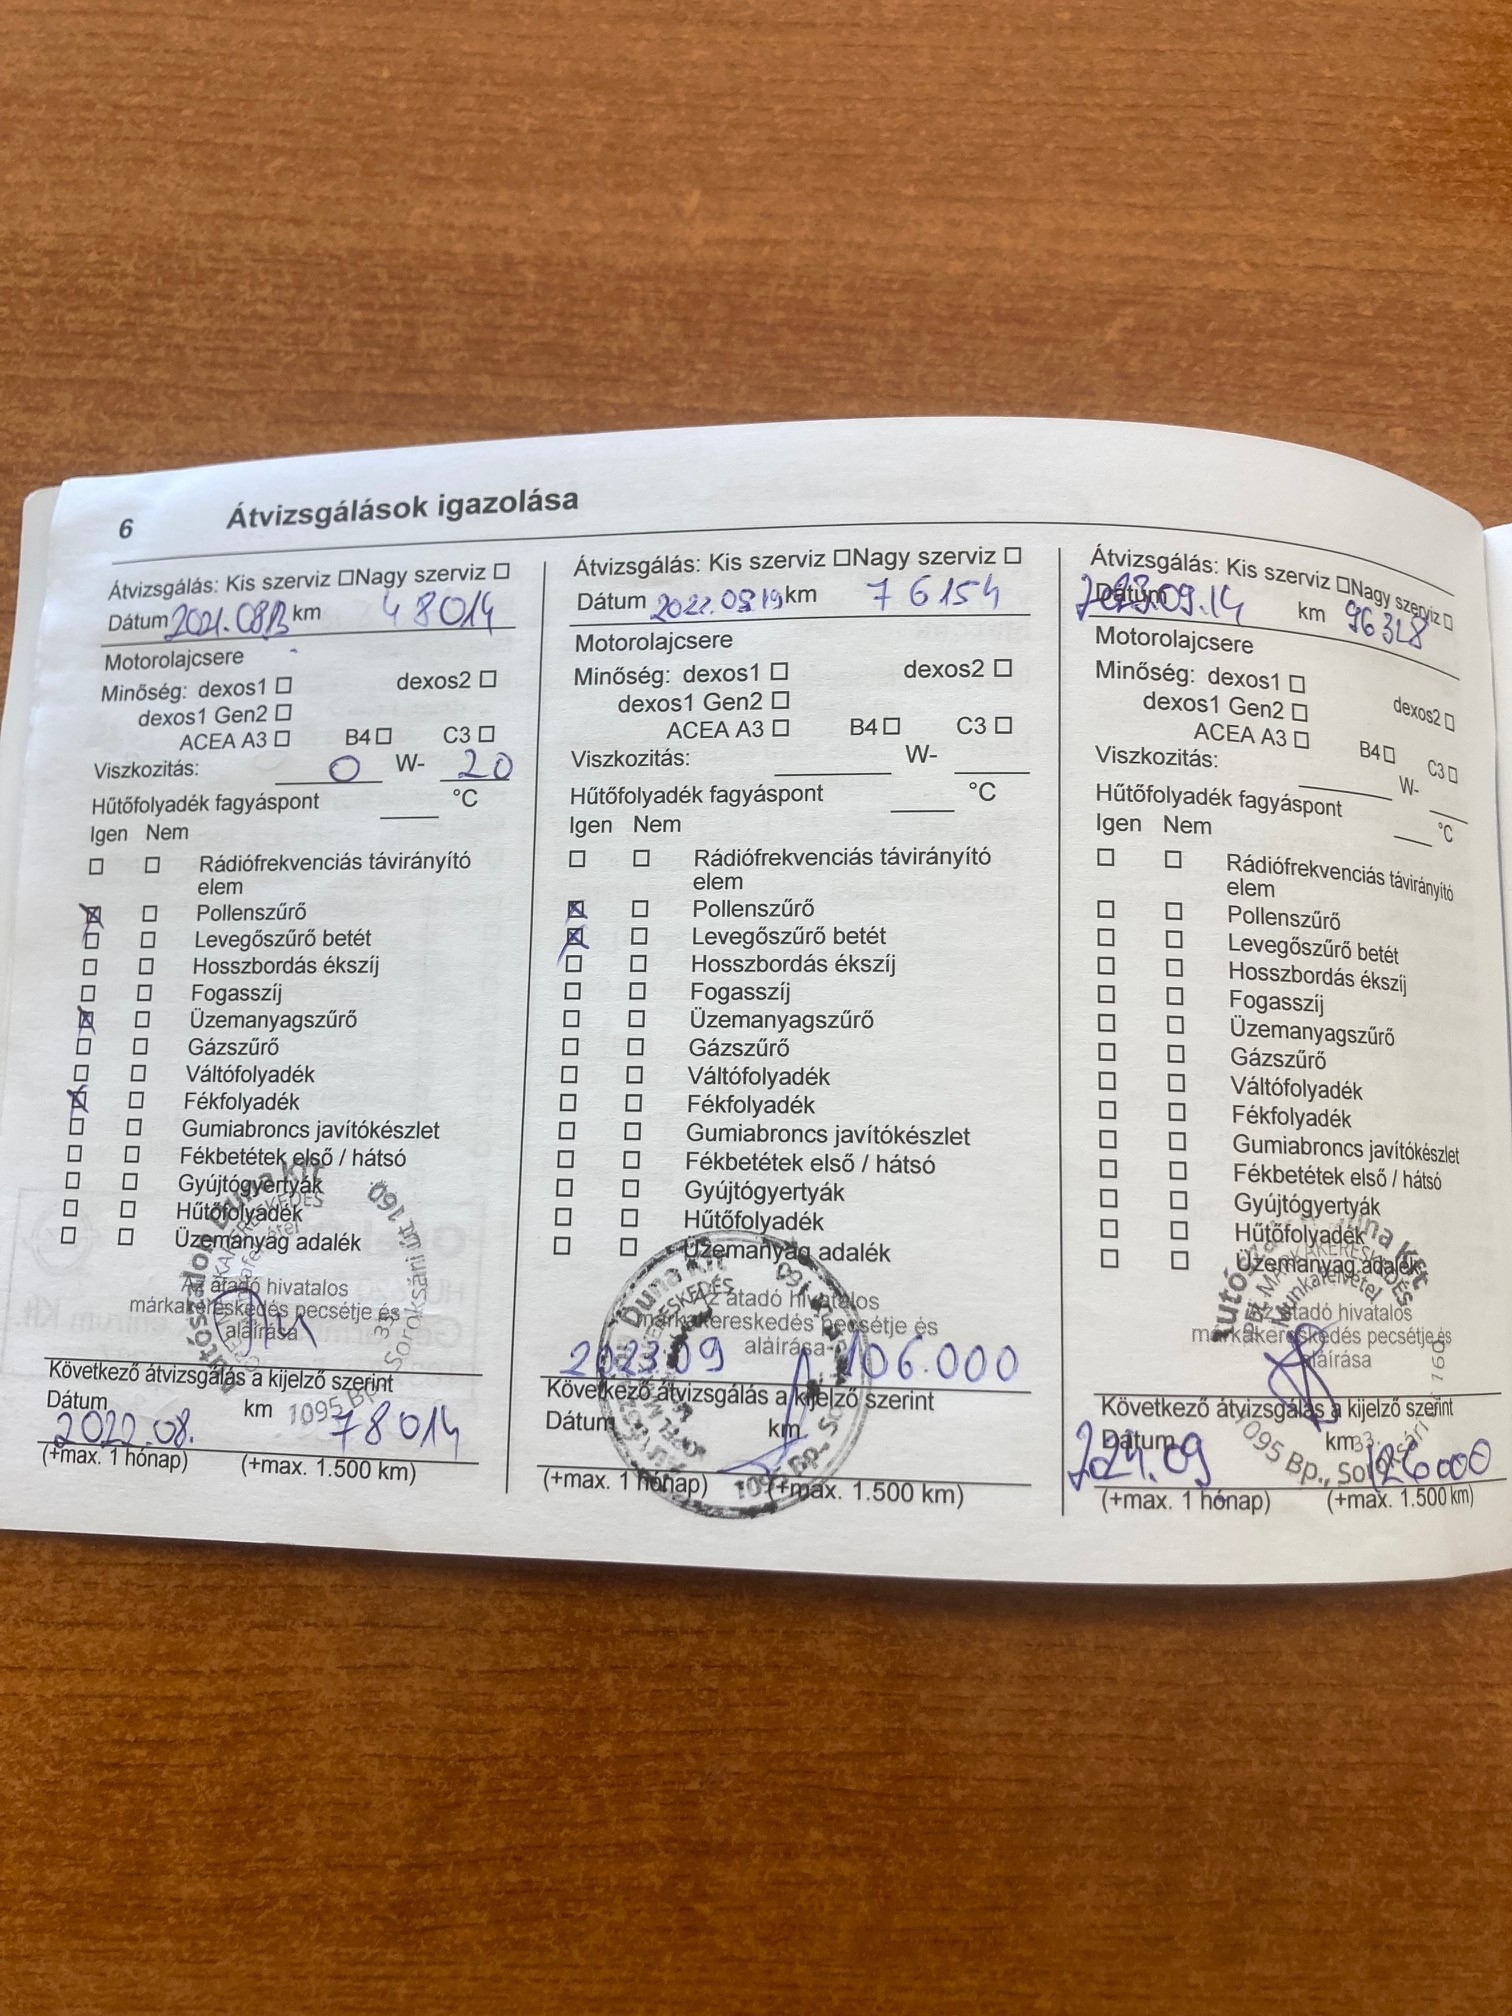 6 Átvizsgálások igazolása
Átvizsgálás: Kis szerviz ☐Nagy szerviz ☐
Dátum 2021.08.13 km 48014
Motorolajcsere
Minőség: dexos1 ☐ dexos2 ☐
dexos1 Gen2 ☐
ACEA A3 ☐ B4 ☐ C3 ☐
Viszkozitás: 0 W- 20
Hűtőfolyadék fagyáspont ____ °C
Igen Nem
☐ ☐ Rádiófrekvenciás távirányító
elem
☒ ☐ Pollenszűrő
☐ ☐ Levegőszűrő betét
☐ ☐ Hosszbordás ékszíj
☐ ☐ Fogasszíj
☒ ☐ Üzemanyagszűrő
☐ ☐ Gázszűrő
☐ ☐ Váltófolyadék
☒ ☐ Fékfolyadék
☐ ☐ Gumiabroncs javítókészlet
☐ ☐ Fékbetétek első / hátsó
☐ ☐ Gyújtógyertyák
☐ ☐ Hűtőfolyadék
☐ ☐ Üzemanyag adalék
Az átadó hivatalos
márkakereskedés pecsétje és
aláírása
Duna Kft
Soroksári út 160
1095 Bp.
Következő átvizsgálás a kijelző szerint
Dátum km
2022.08. 78014
(+max. 1 hónap) (+max. 1.500 km)
Átvizsgálás: Kis szerviz ☐Nagy szerviz ☐
Dátum 2022.08.19 km 76154
Motorolajcsere
Minőség: dexos1 ☐ dexos2 ☐
dexos1 Gen2 ☐
ACEA A3 ☐ B4 ☐ C3 ☐
Viszkozitás: ____ W- ____
Hűtőfolyadék fagyáspont ____ °C
Igen Nem
☐ ☐ Rádiófrekvenciás távirányító
elem
☒ ☐ Pollenszűrő
☒ ☐ Levegőszűrő betét
☐ ☐ Hosszbordás ékszíj
☐ ☐ Fogasszíj
☐ ☐ Üzemanyagszűrő
☐ ☐ Gázszűrő
☐ ☐ Váltófolyadék
☐ ☐ Fékfolyadék
☐ ☐ Gumiabroncs javítókészlet
☐ ☐ Fékbetétek első / hátsó
☐ ☐ Gyújtógyertyák
☐ ☐ Hűtőfolyadék
☐ ☐ Üzemanyag adalék
Az átadó hivatalos
márkakereskedés pecsétje és
aláírása
Duna Kft
1095 Bp.
2023.09 106.000
Következő átvizsgálás a kijelző szerint
Dátum km
(+max. 1 hónap) (+max. 1.500 km)
Átvizsgálás: Kis szerviz ☐Nagy szerviz ☐
Dátum 2023.09.14 km 96328
Motorolajcsere
Minőség: dexos1 ☐ dexos2 ☐
dexos1 Gen2 ☐
ACEA A3 ☐ B4 ☐ C3 ☐
Viszkozitás: ____ W- ____
Hűtőfolyadék fagyáspont ____ °C
Igen Nem
☐ ☐ Rádiófrekvenciás távirányító
elem
☐ ☐ Pollenszűrő
☐ ☐ Levegőszűrő betét
☐ ☐ Hosszbordás ékszíj
☐ ☐ Fogasszíj
☐ ☐ Üzemanyagszűrő
☐ ☐ Gázszűrő
☐ ☐ Váltófolyadék
☐ ☐ Fékfolyadék
☐ ☐ Gumiabroncs javítókészlet
☐ ☐ Fékbetétek első / hátsó
☐ ☐ Gyújtógyertyák
☐ ☐ Hűtőfolyadék
☐ ☐ Üzemanyag adalék
Az átadó hivatalos
márkakereskedés pecsétje és
aláírása
Munkafelvétel
1095 Bp.,
Következő átvizsgálás a kijelző szerint
Dátum km
2024.09 126000
(+max. 1 hónap) (+max. 1.500 km)